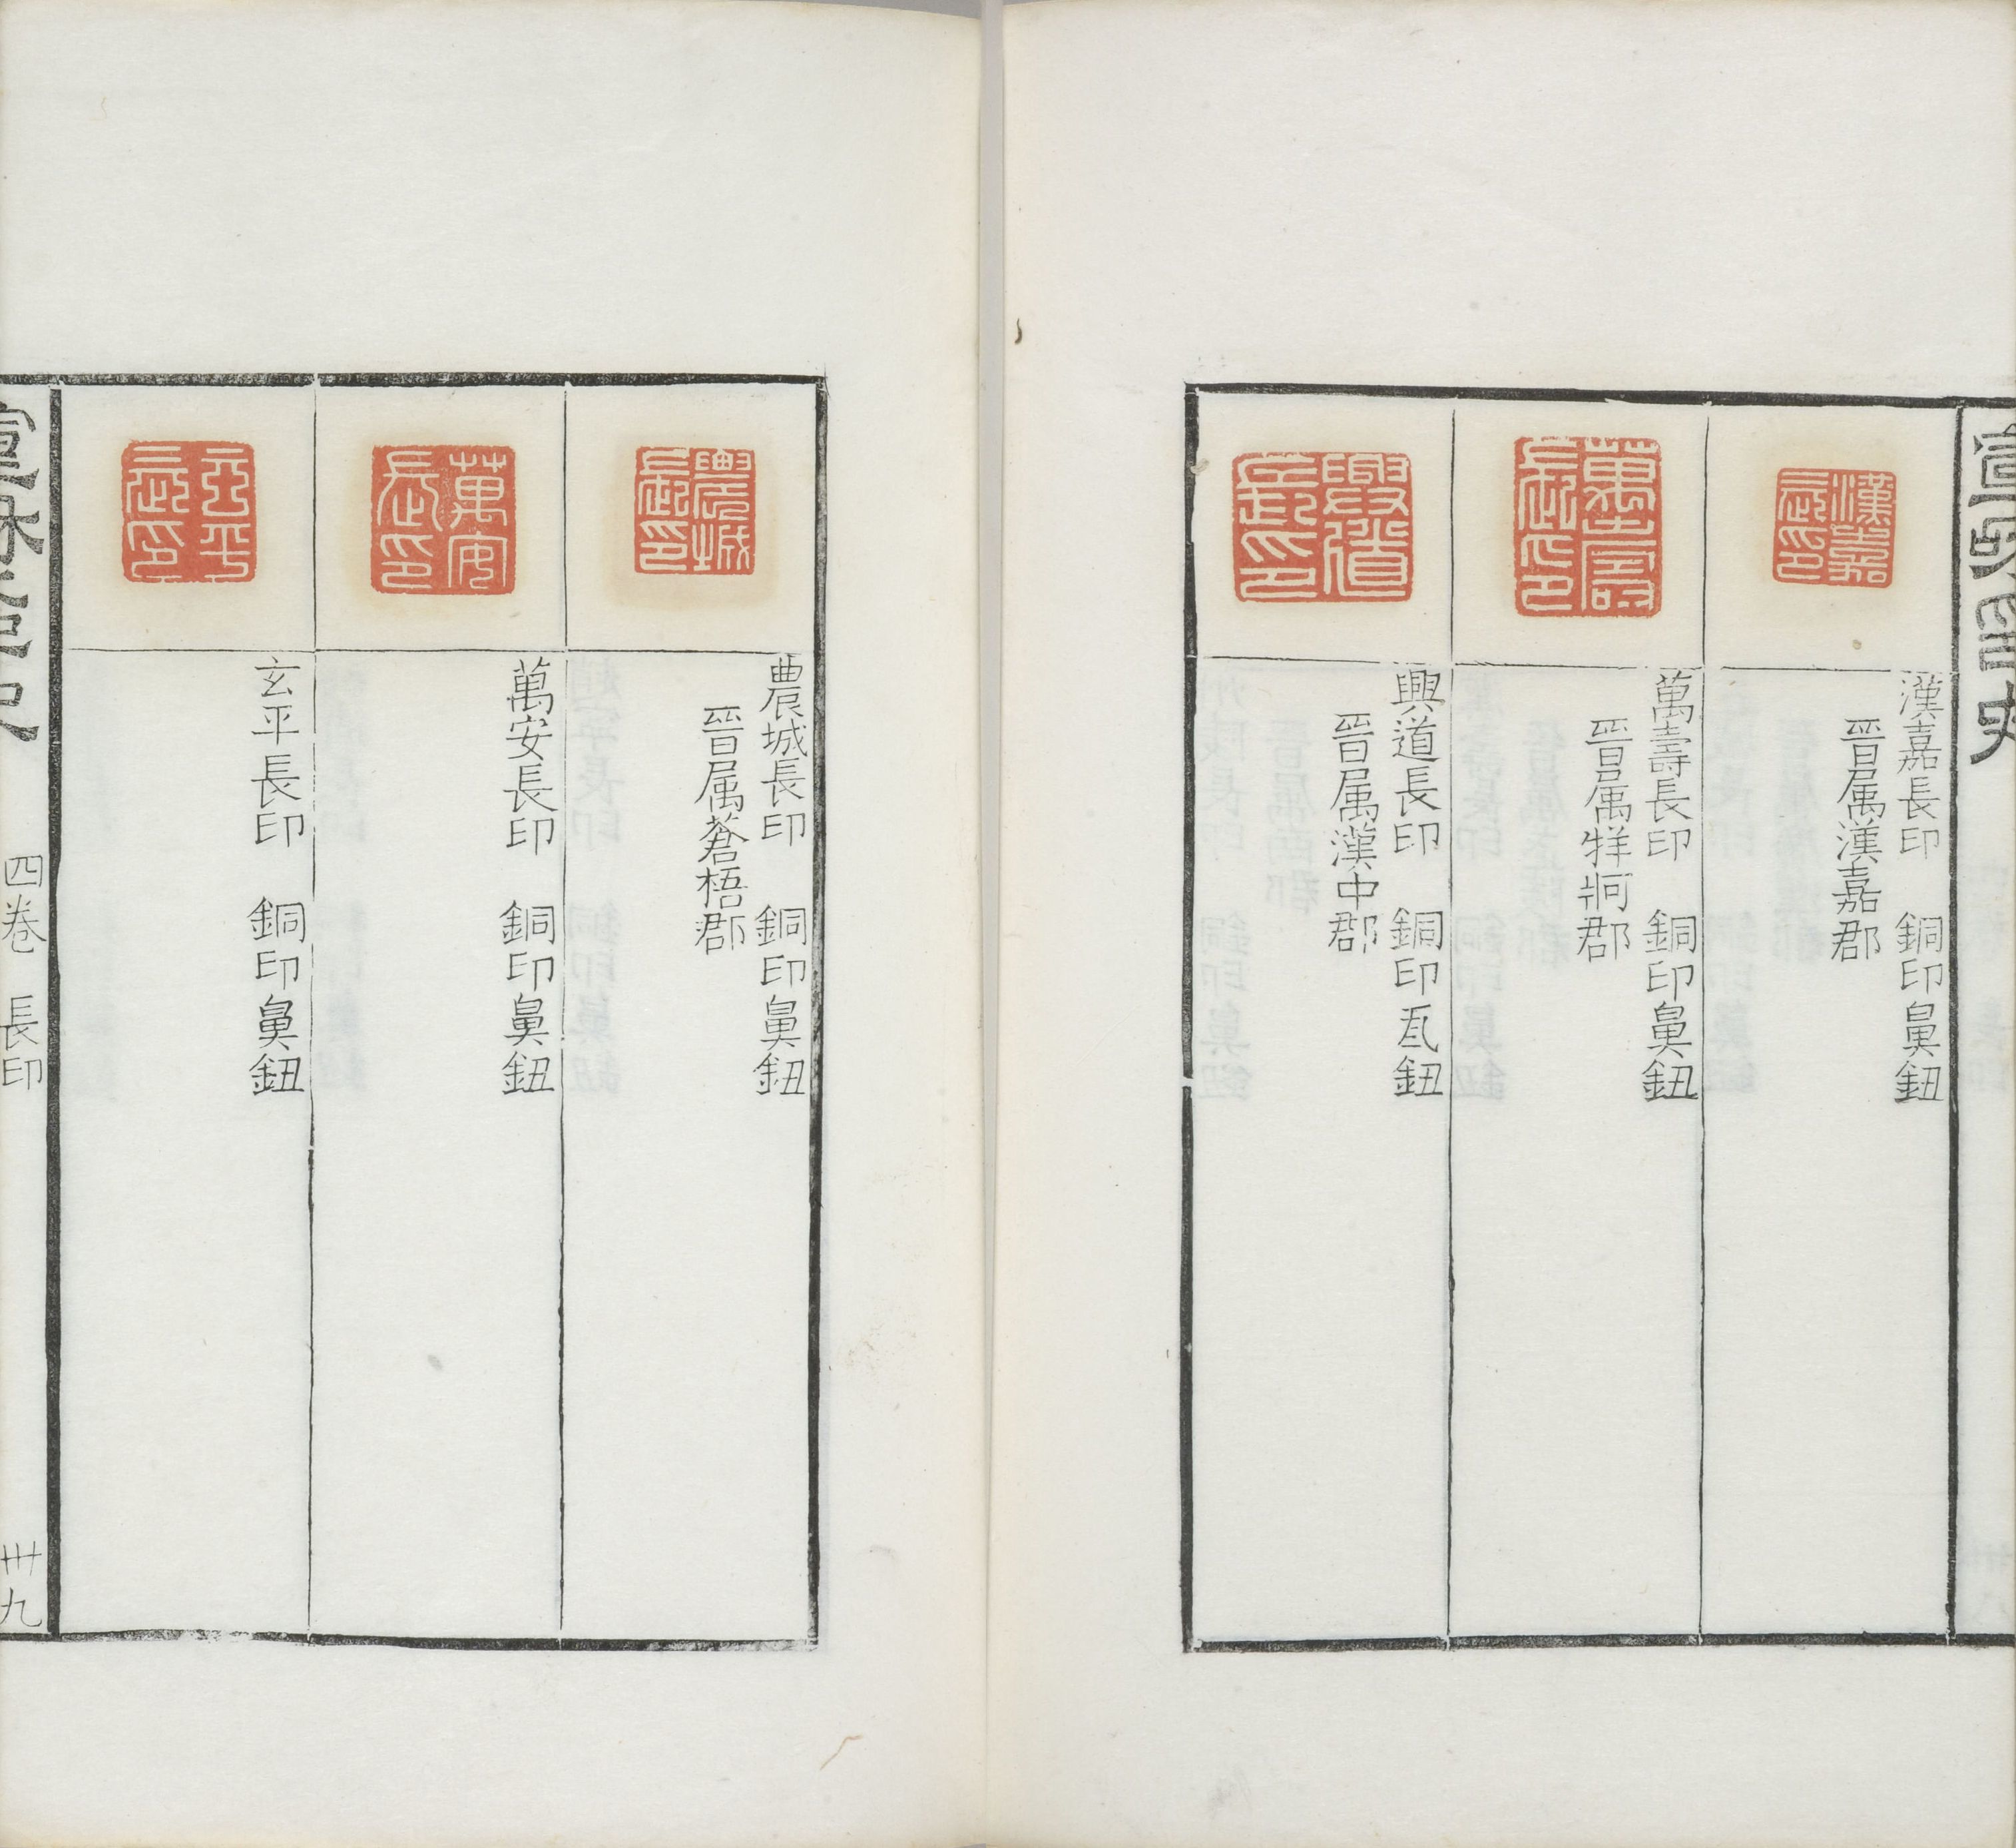 漢嘉長印　銅印鼻鈕
晉属漢嘉郡
萬壽長印　銅印鼻鈕
晉属牂牁郡
興道長印　銅印瓦鈕
晉属漢中郡
農城長印　銅印鼻鈕
晉属蒼梧郡
萬安長印　銅印鼻鈕
玄平長印　銅印鼻鈕
四卷　長印
卅九
漢嘉長印
萬壽長印
興道長印
農城長印
萬安長印
玄平長印